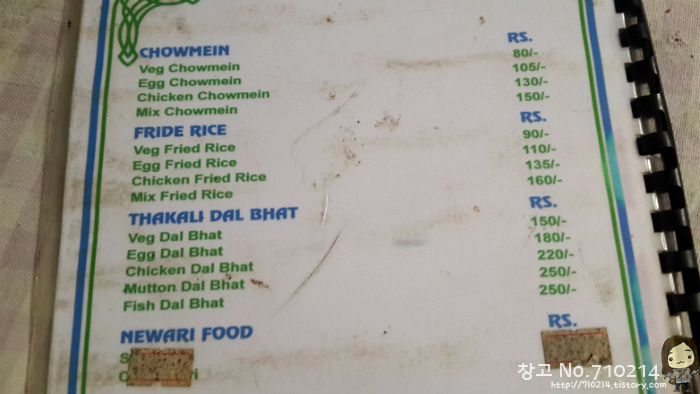 CHOWMEIN RS.
Veg Chowmein 80/-
Egg Chowmein 105/-
Chicken Chowmein 130/-
Mix Chowmein 150/-
FRIDE RICE RS.
Veg Fried Rice 90/-
Egg Fried Rice 110/-
Chicken Fried Rice 135/-
Mix Fried Rice 160/-
THAKALI DAL BHAT RS.
Veg Dal Bhat 150/-
Egg Dal Bhat 180/-
Chicken Dal Bhat 220/-
Mutton Dal Bhat 250/-
Fish Dal Bhat 250/-
NEWARI FOOD RS.
창고 No.710214
http://710214.tistory.com/